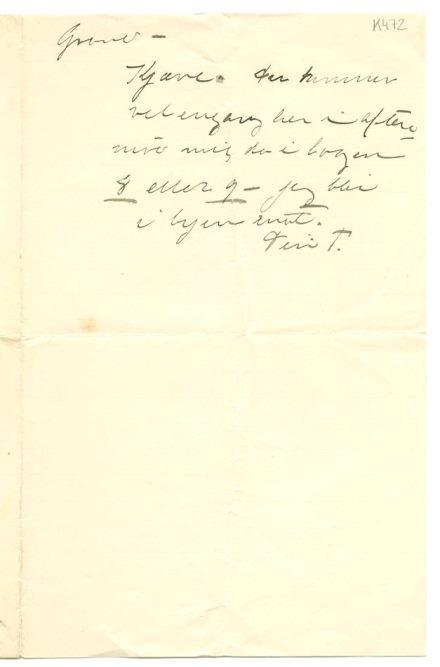 K472
Grand –
Kjære. Du kommer
vel engang her i aften
mød mig da i logen
8 eller 9 – jeg blir
i byen
Din T.